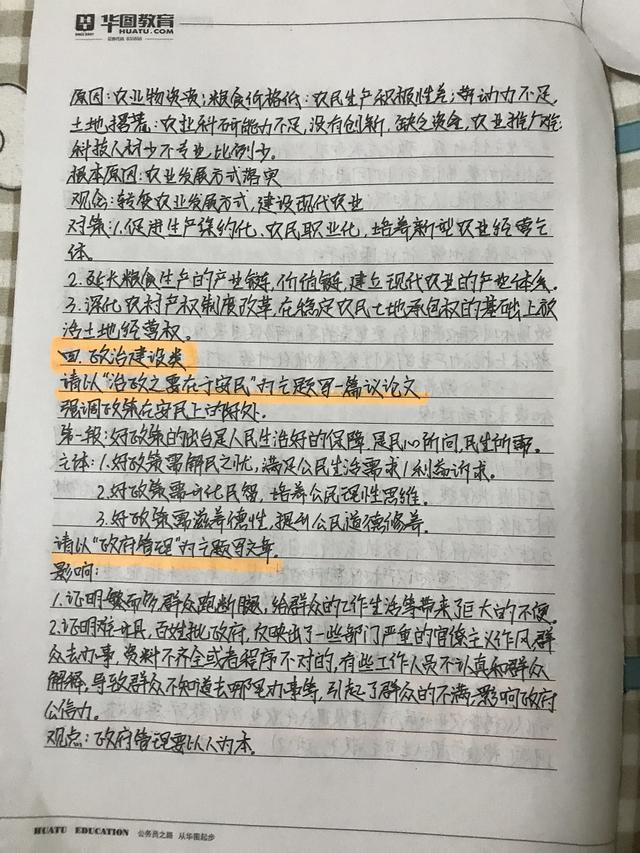 华图教育
HUATU.COM
原因：农业物资贵；粮食价格低：农民生产积极性差；劳动力不足，
土地撂荒：农业科研能力不足，没有创新，缺乏资金，农业推广难：
科技人才少不专业，比例少。
根本原因：农业发展方式落
观念：转变农业发展方式，建设现代农业
对策：1.促进生产集约化、农民职业化，培养新型农业经营主
体。
2.延长粮食生产的产业链，价值链，建立现代农业的产业体系。
3.深化农村产权制度改革，在稳定农民土地承包权的基础上放
活土地经营权。
四.政治建设类
请以“治政之要在于安民”为主题写一篇议论文
强调政策在安民上的好处。
第一段：好政策的出台是人民生活好的保障，是民心所向，民生所需。
主体：1.好政策需解民之忧，满足公民生活需求、利益诉求。
2.好政策需开化民智，培养公民理性思维。
3.好政策需滋养德性，提升公民道德修养。
请以“政府管理”为主题写文章。
影响：
1.证明繁而多，群众跑断腿，给群众的工作生活等带来了巨大的不便。
2.证明难开具，百姓批政府，反映出了一些部门严重的官僚主义作风，群
众去办事，资料不齐全或者程序不对的，有些工作人员不认真和群众
解释，导致群众不知道去哪里办事等，引起了群众的不满，影响政府
公信力。
观点：政府管理要以人为本。
HUATU EDUCATION 公务员之路 从华图起步